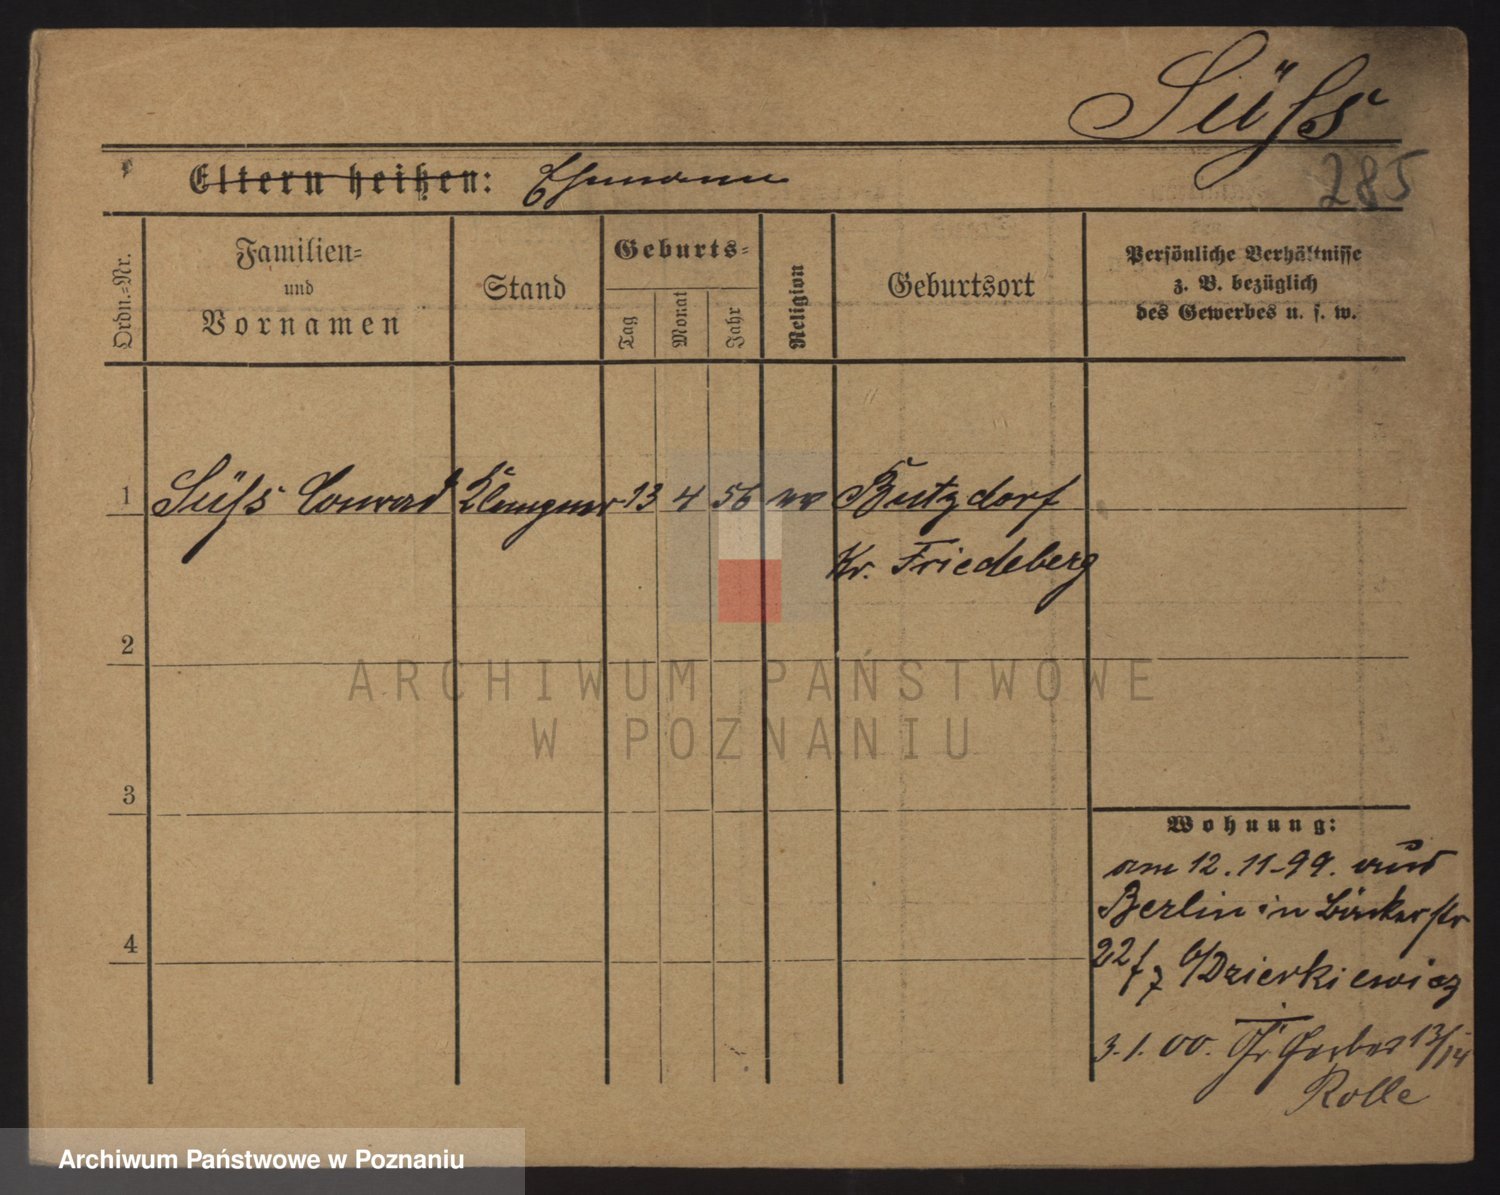 Süss
285
Eltern heißen: Ehemann
Ordn.-Nr.
Familien-
und
Vornamen
Stand
Geburts-
Tag
Monat
Jahr
Religion
Geburtsort
Persönliche Verhältnisse
z. B. bezüglich
des Gewerbes u. s. w.
1 Süss Conrad Klempner 13 4 56 Butzdorf
Kr. Friedeberg
2
ARCHIWUM PAŃSTWOWE
W POZNANIU
3
Wohnung:
am 12.11.99. aus
Berlin in Bäckerstr
22/7 b/Dzierkiewicz
4
3.1.00. Gr Gerber 13/14
Rolle
Archiwum Państwowe w Poznaniu